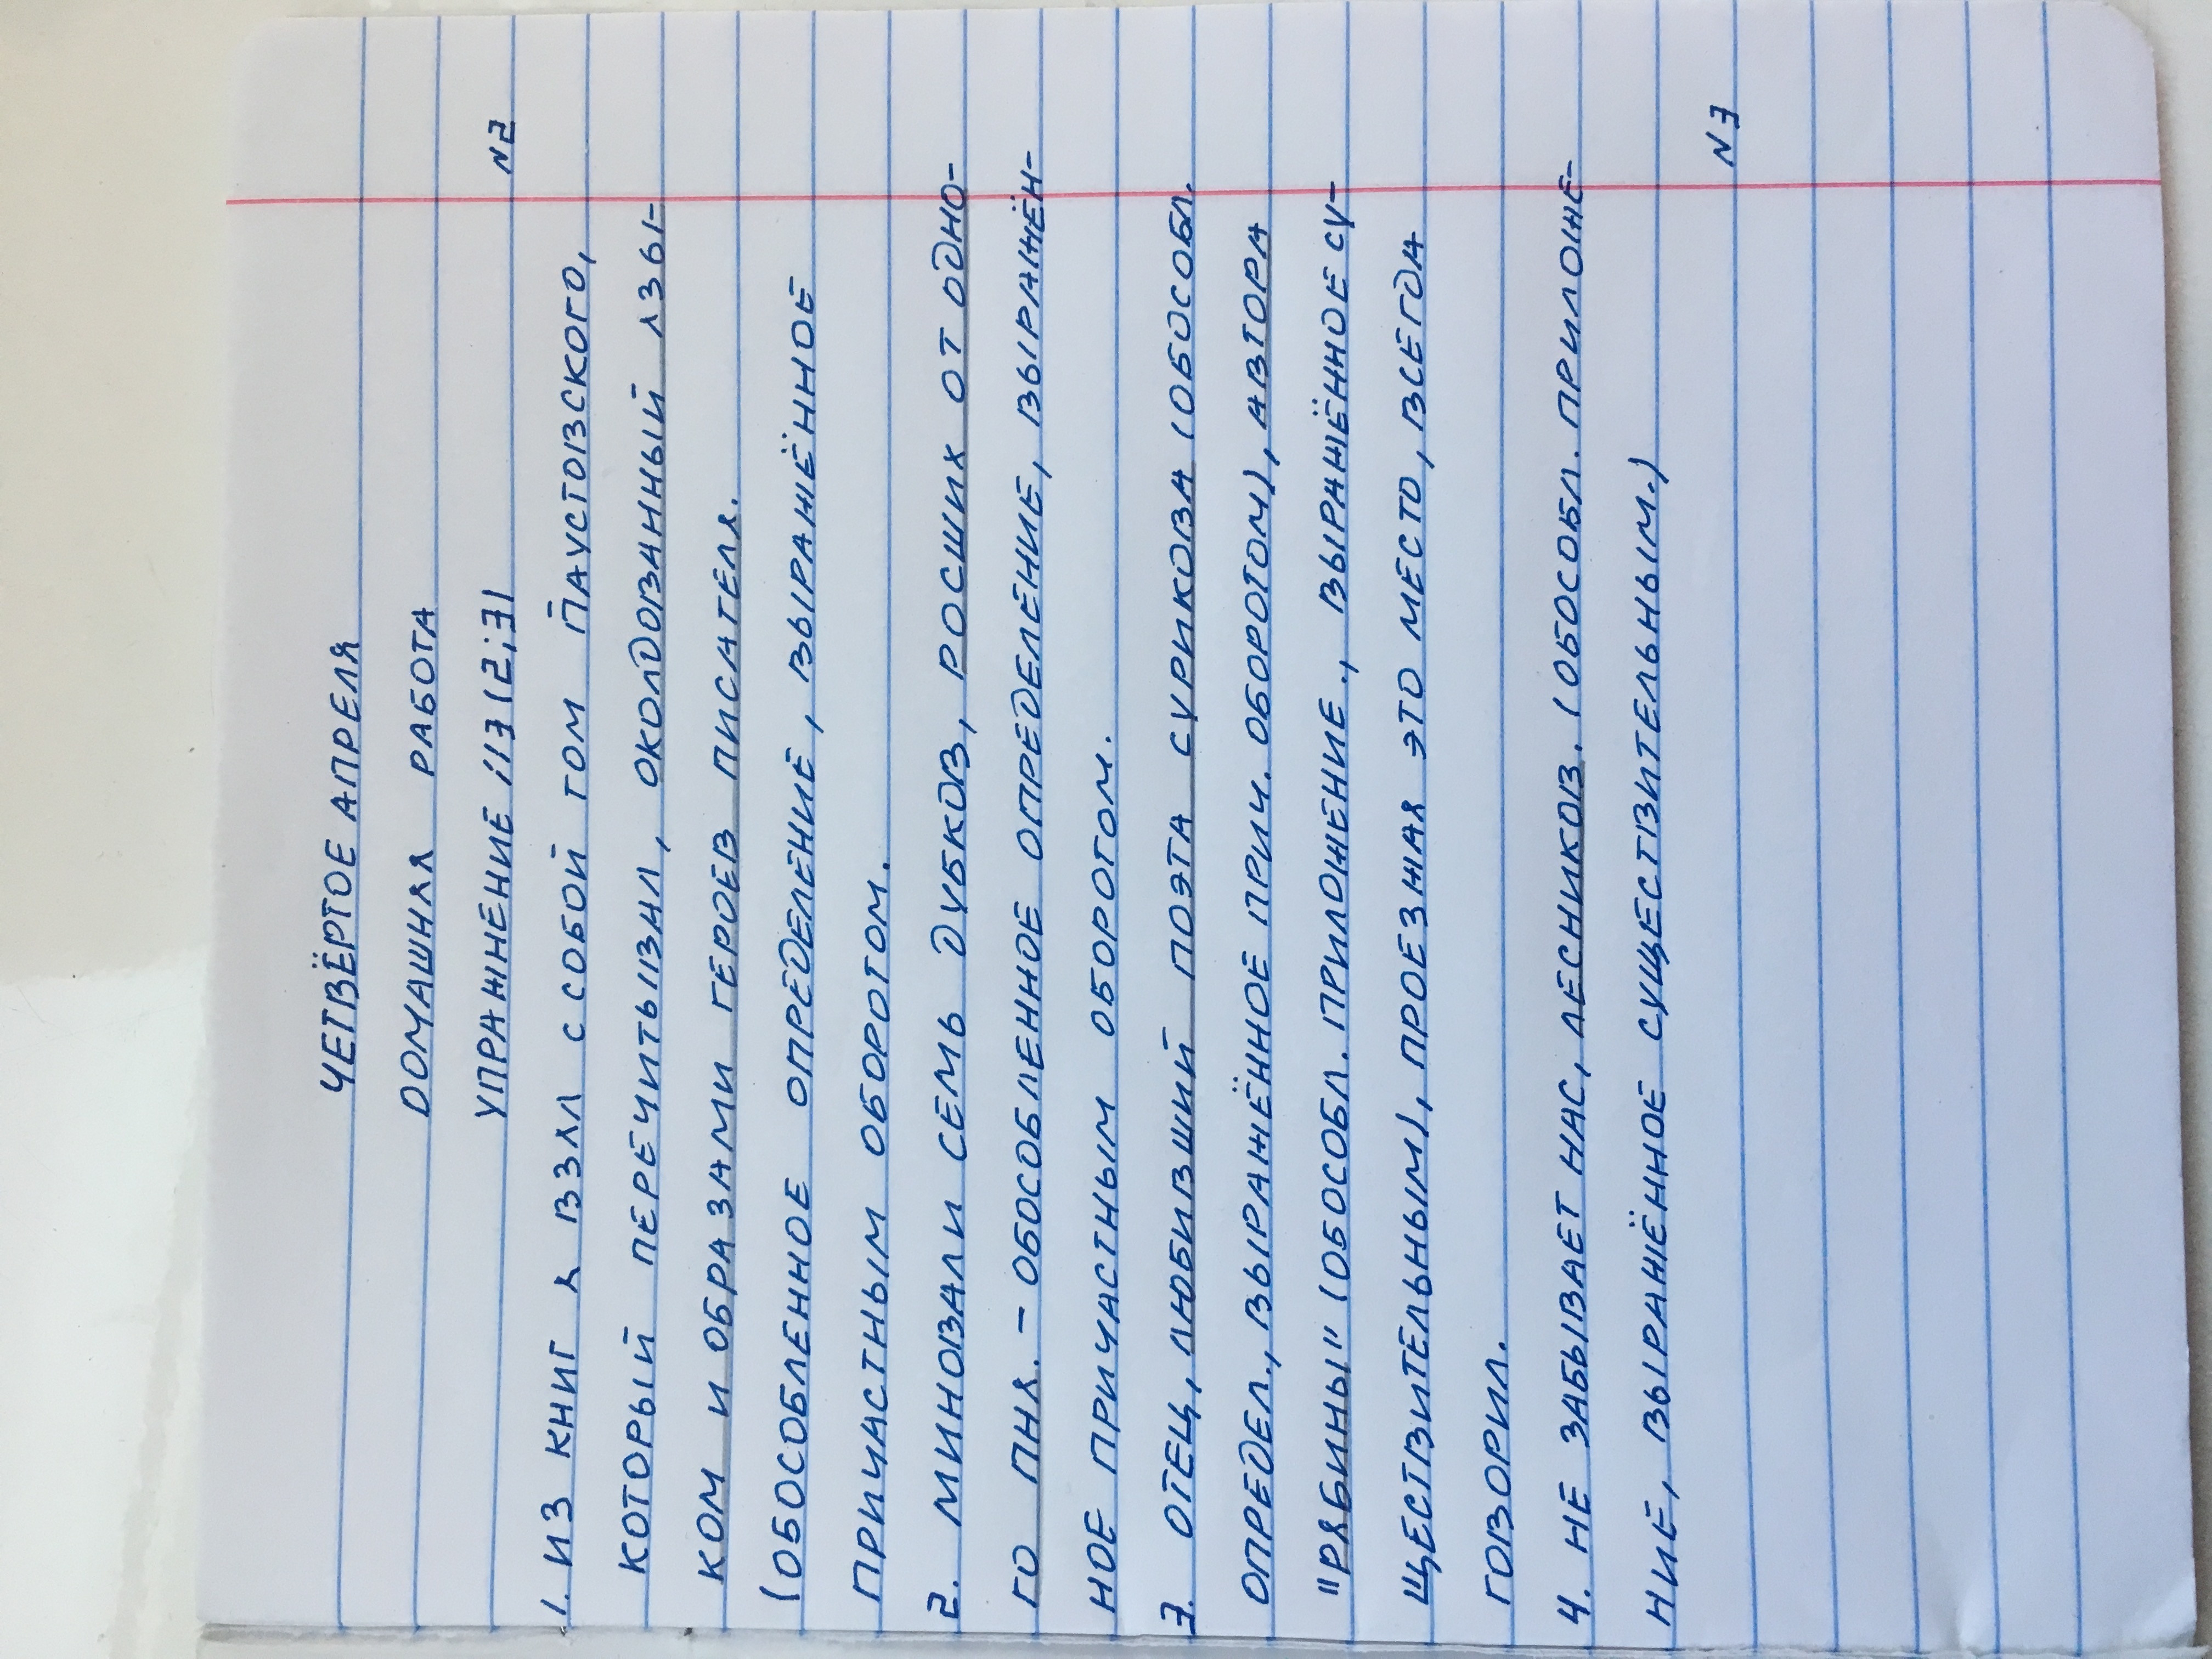 ЧЕТВЁРТОЕ АПРЕЛЯ
ДОМАШНЯЯ РАБОТА
УПРАЖНЕНИЕ 113 (2;3)
N2
1. ИЗ КНИГ Я ВЗЯЛ С СОБОЙ ТОМ ПАУСТОВСКОГО,
КОТОРЫЙ ПЕРЕЧИТЫВАЛ, ОКОЛДОВАННЫЙ ЯЗЫ-
КОМ И ОБРАЗАМИ ГЕРОЕВ ПИСАТЕЛЯ.
(ОБОСОБЛЕННОЕ ОПРЕДЕЛЕНИЕ, ВЫРАЖЁННОЕ
ПРИЧАСТНЫМ ОБОРОТОМ.
2. МИНОВАЛИ СЕМЬ ДУБКОВ, РОСШИХ ОТ ОДНО-
ГО ПНЯ. - ОБОСОБЛЕННОЕ ОПРЕДЕЛЕНИЕ, ВЫРАЖЁН-
НОЕ ПРИЧАСТНЫМ ОБОРОТОМ.
3. ОТЕЦ, ЛЮБИВШИЙ ПОЭТА СУРИКОВА (ОБОСОБЛ.
ОПРЕДЕЛ., ВЫРАЖЁННОЕ ПРИЧ. ОБОРОТОМ), АВТОРА
"РЯБИНЫ" (ОБОСОБЛ. ПРИЛОЖЕНИЕ., ВЫРАЖЁННОЕ СУ-
ЩЕСТВИТЕЛЬНЫМ), ПРОЕЗЖАЯ ЭТО МЕСТО, ВСЕГДА
ГОВОРИЛ.
4. НЕ ЗАБЫВАЕТ НАС, ЛЕСНИКОВ. (ОБОСОБЛ. ПРИЛОЖЕ-
НИЕ, ВЫРАЖЁННОЕ СУЩЕСТВИТЕЛЬНЫМ.)
N3